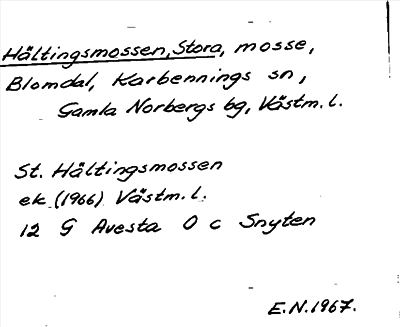 Hältingsmossen, Stora, mosse,
Blomdal, Karbennings sn,
Gamla Norbergs bg, Västm. l.
St. Hältingsmossen
ek. (1966) Västm. l.
12 G Avesta O c Snyten
E.N. 1967.